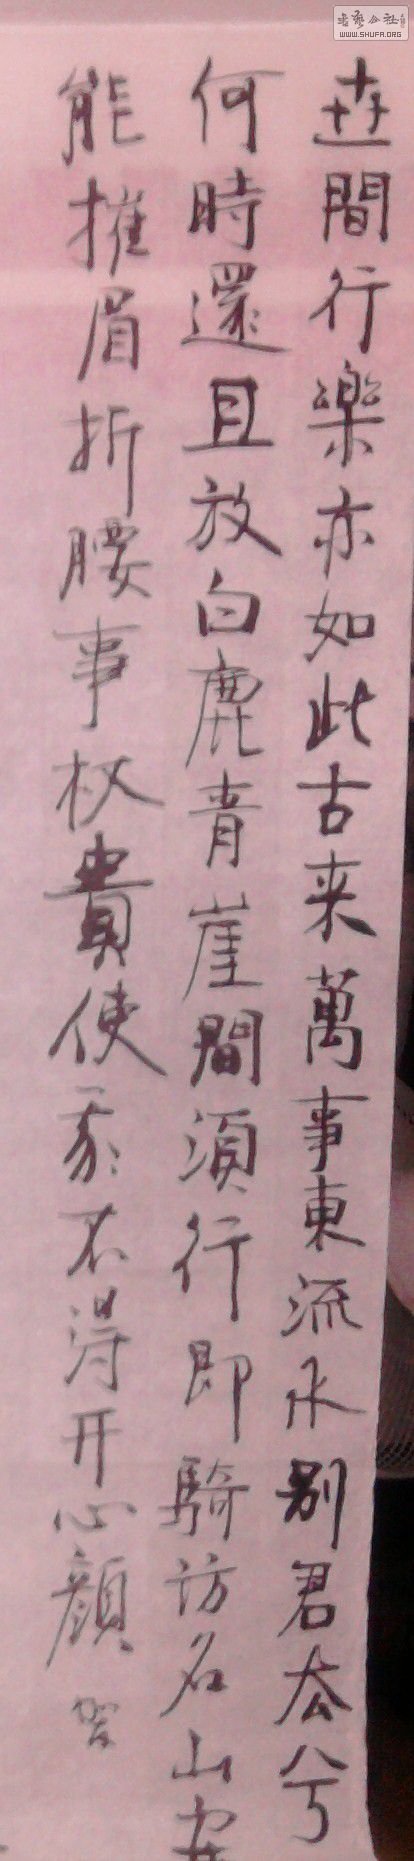 世間行樂亦如此古来萬事東流水别君去兮
何時還且放白鹿青崖間須行即騎訪名山安
能摧眉折腰事权貴使我不得开心顔
書藝公社
WWW.SHUFA.ORG